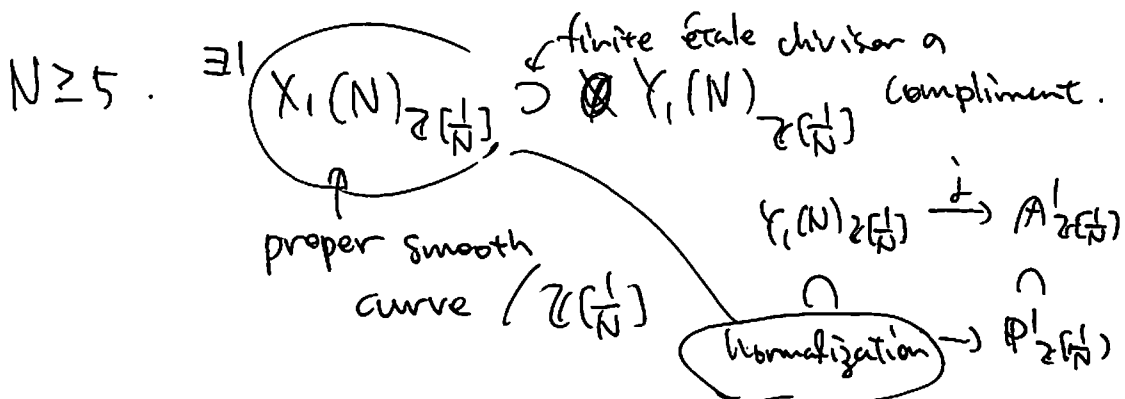 N ≥ 5. ∃1 X₁(N)_ℤ[1/N] ⊃ Y₁(N)_ℤ[1/N]
finite étale divisor a compliment.
proper smooth curve / ℤ[1/N]
Y₁(N)_ℤ[1/N] →^j 𝔸¹_ℤ[1/N]
∩ ∩
Normalization → ℙ¹_ℤ[1/N]